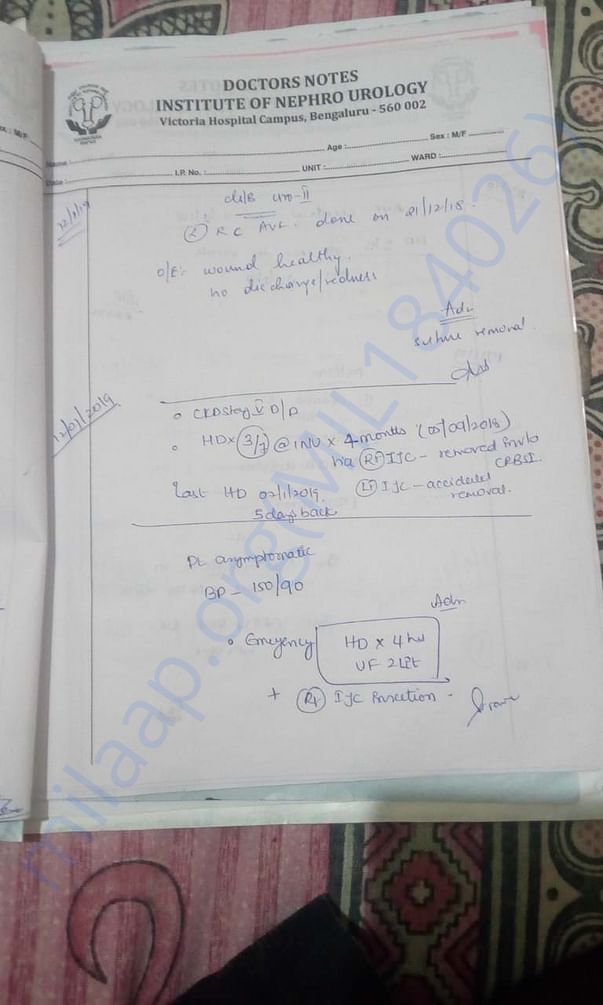 DOCTORS NOTES
INSTITUTE OF NEPHRO UROLOGY
Victoria Hospital Campus, Bengaluru - 560 002
Name : Age : Sex : M/F
Date : I.P. No. : UNIT : WARD :
c/s/b uro-II
RC AVF. done on 21/12/18.
O/E: wound healthy.
no discharge/redness
Adv
suture removal.
12/01/2019
• CKD Stage V D/D
• HD x 3/7 @ INU x 4 months (05/09/2018)
via Rt IJC - removed in v/o
CRBSI
Last HD 02/1/2019. Lt IJC - accidental
removal.
5 days back
Pt asymptomatic
BP - 150/90
Adv
• Emergency HD x 4 hrs
UF 2 Lit
+ Rt IJC Insertion -
milaap.org(MIL184026)